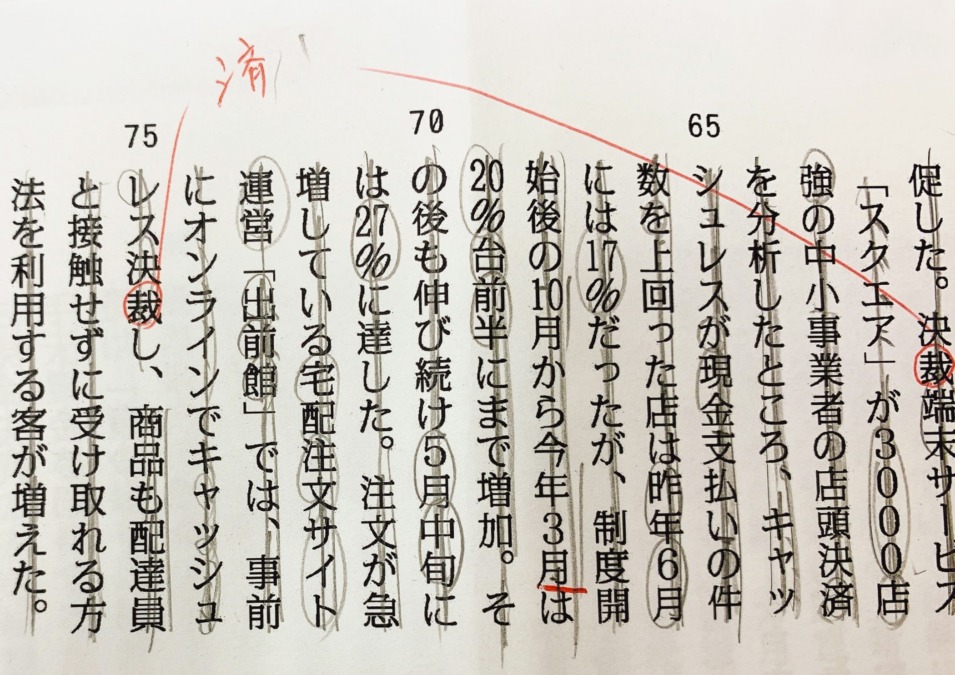 済
65
70
75
促した。決裁端末サービス
「スクエア」が3000店
強の中小事業者の店頭決済
を分析したところ、キャッ
シュレスが現金支払いの件
数を上回った店は昨年6月
には17%だったが、制度開
始後の10月から今年3月は
20%台前半にまで増加。そ
の後も伸び続け5月中旬に
は27%に達した。注文が急
増している宅配注文サイト
運営「出前館」では、事前
にオンラインでキャッシュ
レス決裁し、商品も配達員
と接触せずに受け取れる方
法を利用する客が増えた。